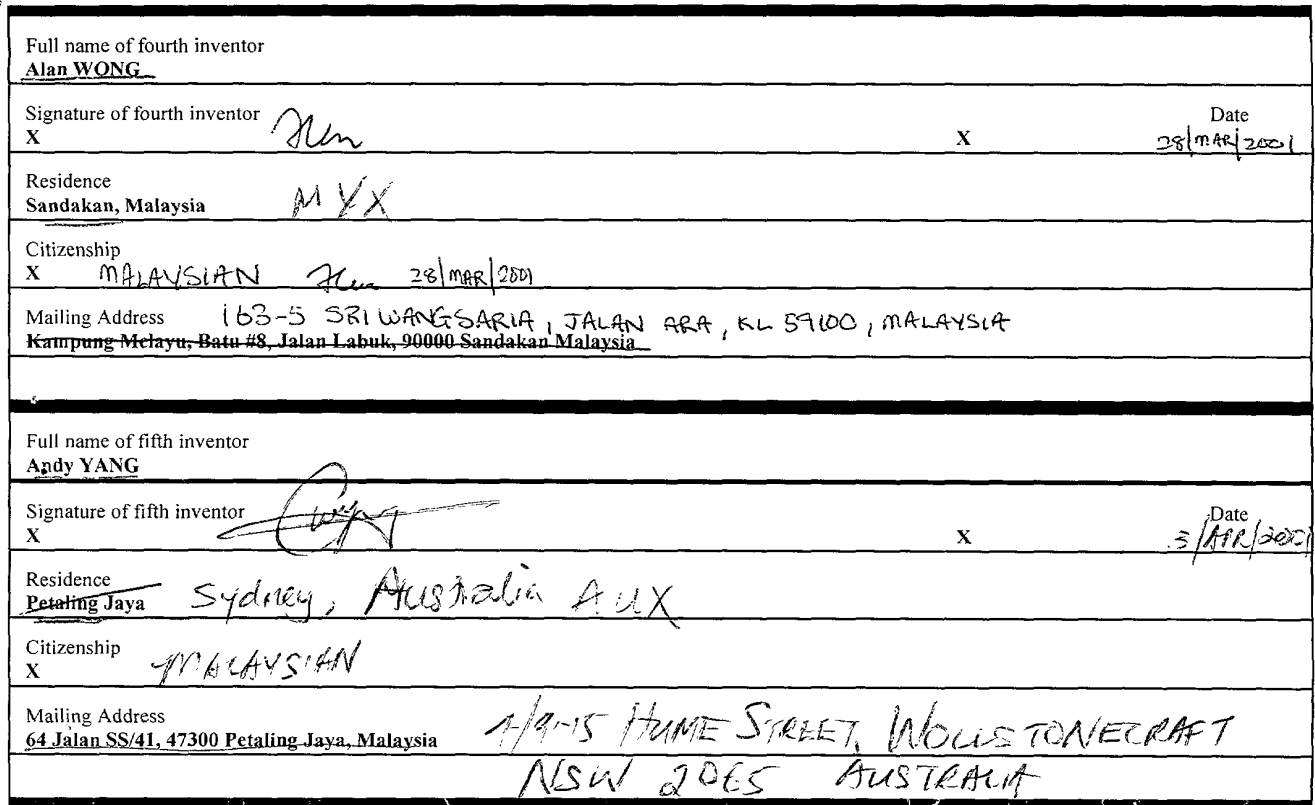 Full name of fourth inventor
Alan WONG
Signature of fourth inventor Date
X X 28/MAR/2001
Residence
Sandakan, Malaysia MYX
Citizenship
X MALAYSIAN 28/MAR/2001
Mailing Address 163-5 SRI WANGSARIA, JALAN ARA, KL 59100, MALAYSIA
Kampung Melayu, Batu #8, Jalan Labuk, 90000 Sandakan Malaysia
Full name of fifth inventor
Andy YANG
Signature of fifth inventor Date
X X 3/APR/2001
Residence
Petaling Jaya Sydney, Australia AUX
Citizenship
X MALAYSIAN
Mailing Address HUME STREET, WOLLSTONECRAFT
64 Jalan SS/41, 47300 Petaling Jaya, Malaysia
NSW 2065 AUSTRALIA